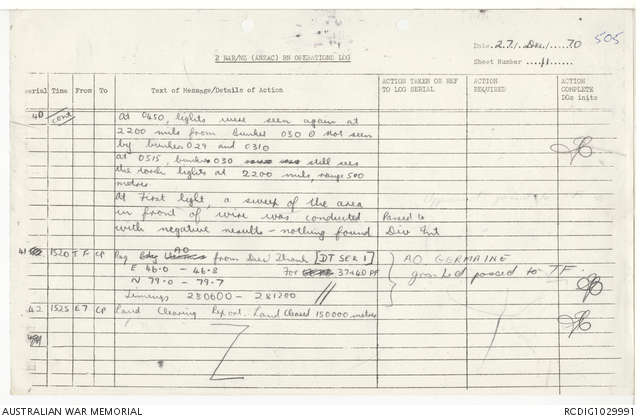 Date 27/Dec/70 505
2 RAR/NZ (ANZAC) BN OPERATIONS LOG
Sheet Number 11
Serial Time From To Text of Message/Details of Action ACTION TAKEN OR REF TO LOG SERIAL ACTION REQUIRED ACTION COMPLETE DOs inits
40 cont At 0450, lights were seen again at
2200 mils from Bunker 030 Not seen
by bunker 029 and 0310
at 0515, bunker 030 still sees
the lights at 2200 mils, range 500
metres
At First light, a sweep of the area
in front of wire was conducted Passed to
with negative results - nothing found Div Int
41 1520 TF CP Req AO from [DT SER 1] AO GERMAINE
E 46.0 - 46.8 For 37+40 Pl granted passed to TF.
N 79.0 - 79.7
Timings 280600 - 281200
42 1525 E7 CP Land Clearing Report. Land Cleared 150000 metres
AUSTRALIAN WAR MEMORIAL RCDIG1029991